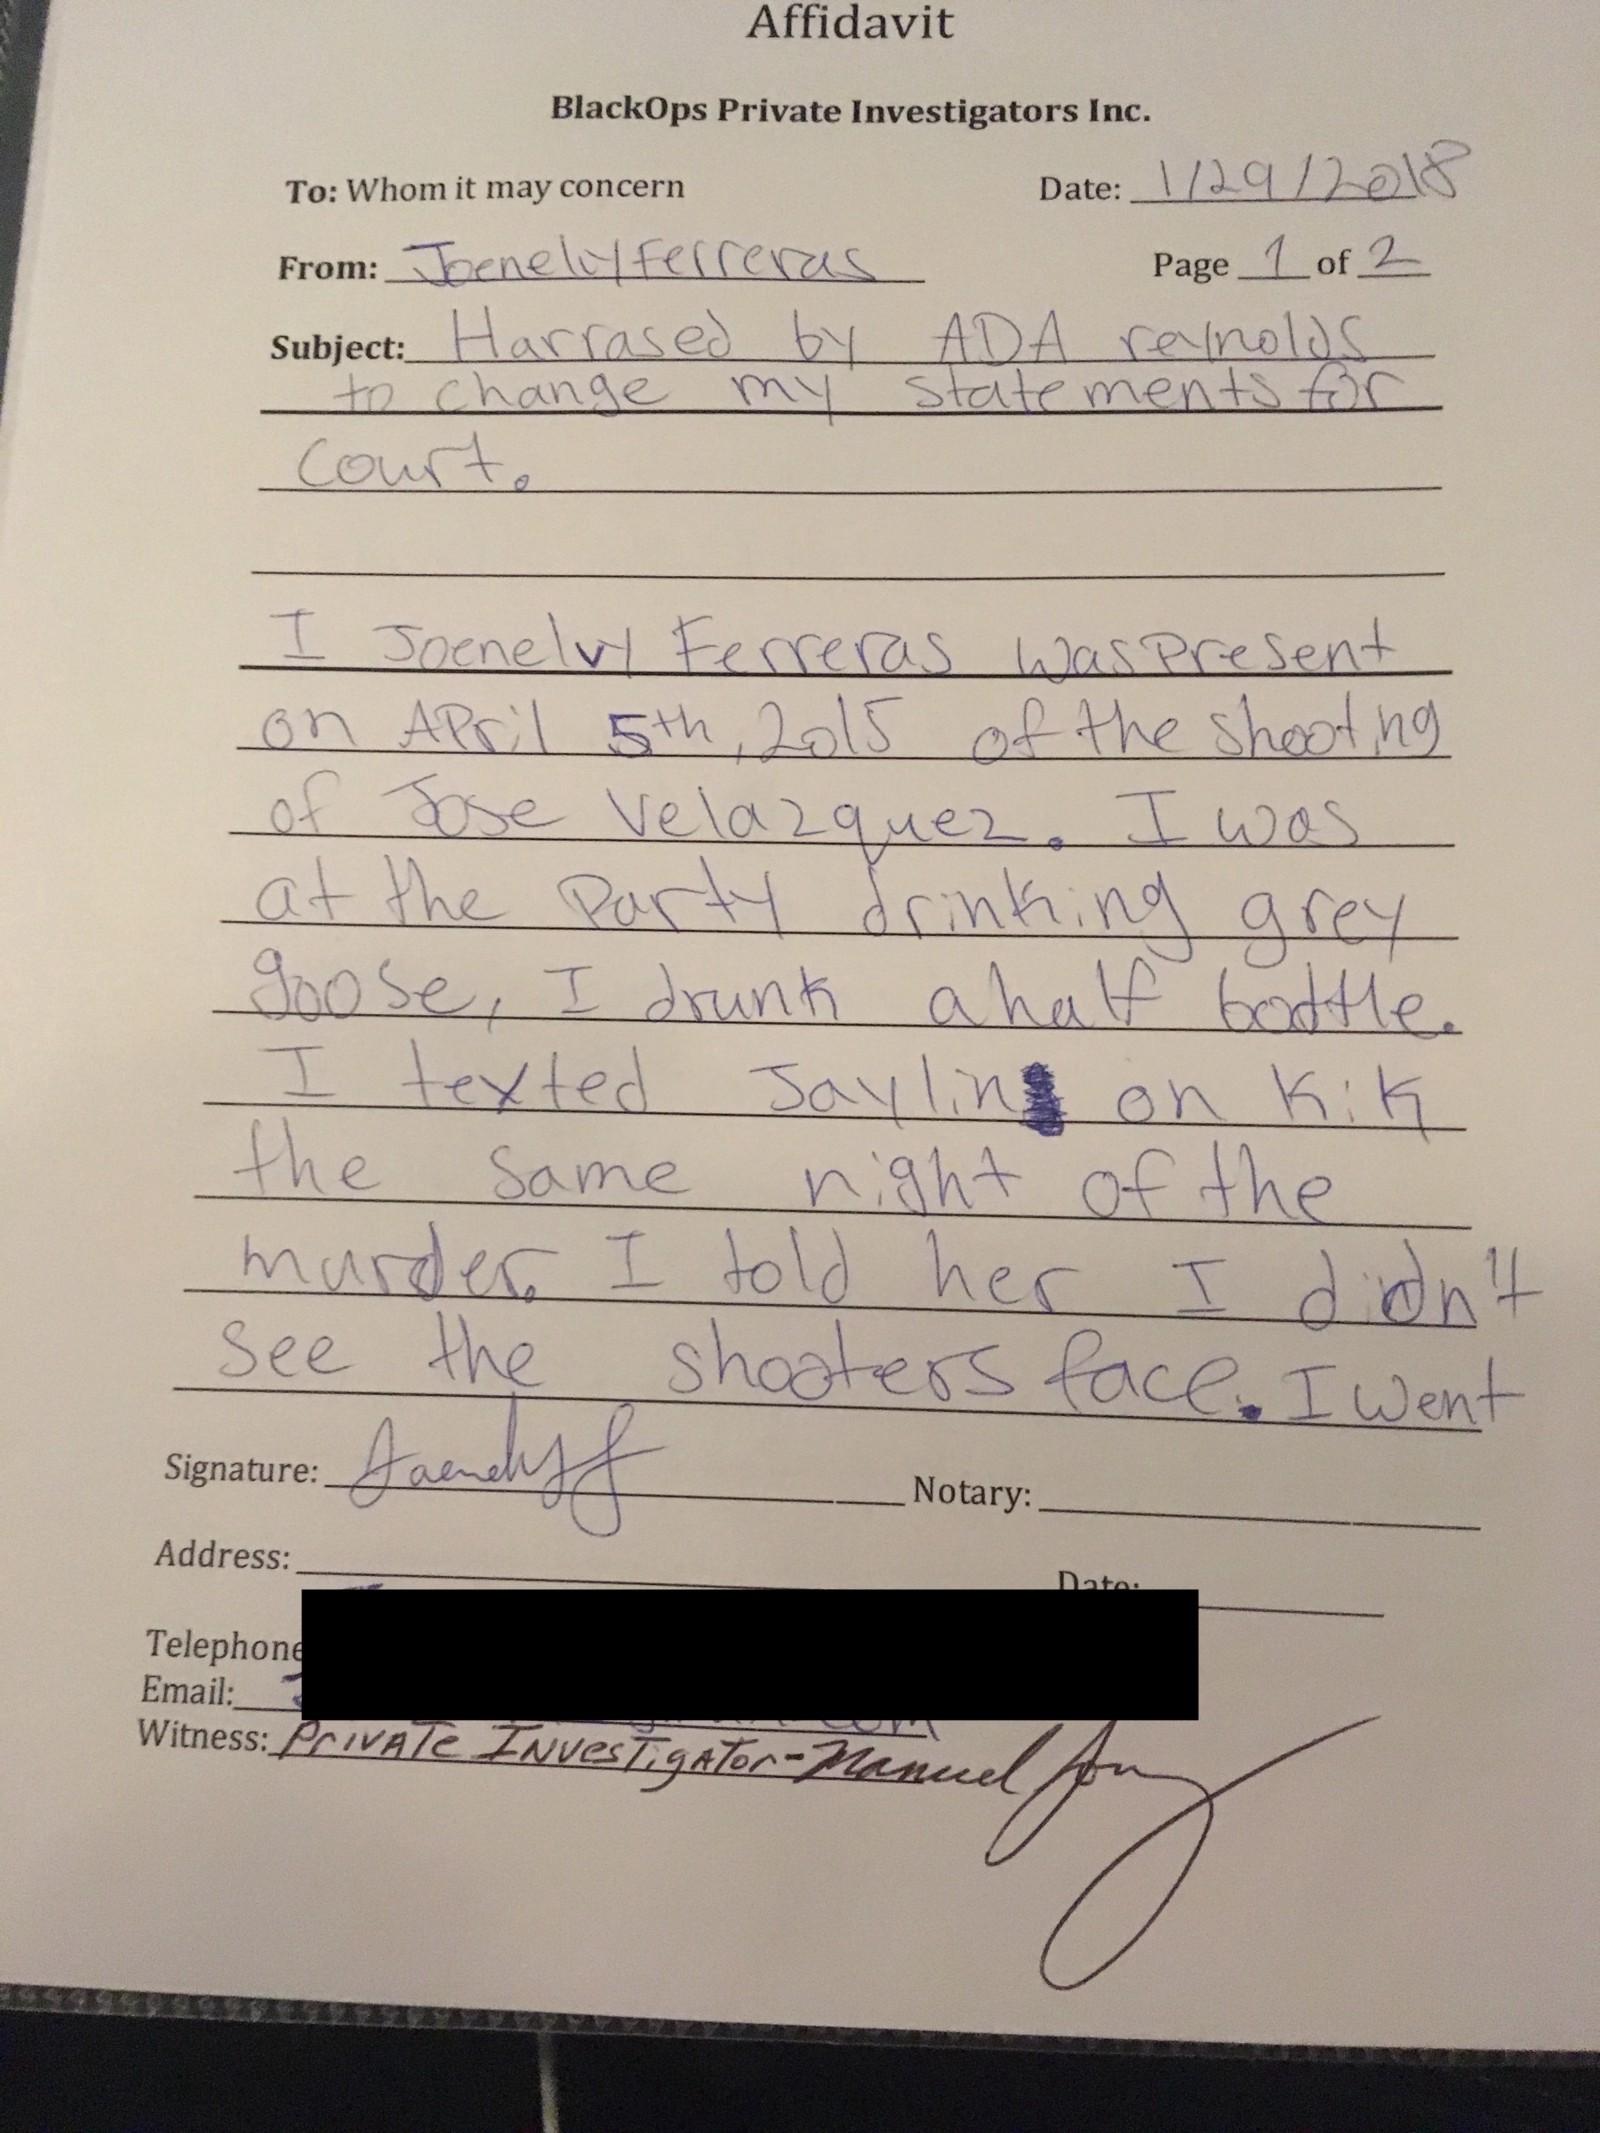 Affidavit
BlackOps Private Investigators Inc.
To: Whom it may concern Date: 1/29/2018
From: Joenelvy Ferreras Page 1 of 2
Subject: Harrased by ADA reynolds
to change my statements for
court.
I Joenelvy Ferreras was present
on April 5th, 2015 of the shooting
of Jose Velazquez. I was
at the Party drinking grey
goose, I drunk a half bottle.
I texted Jaylin on Kik
the same night of the
murder. I told her I didn't
see the shooters face. I went
Signature: Notary:
Address:
Date:
Telephone
Email:
Witness: Private Investigator - Manuel